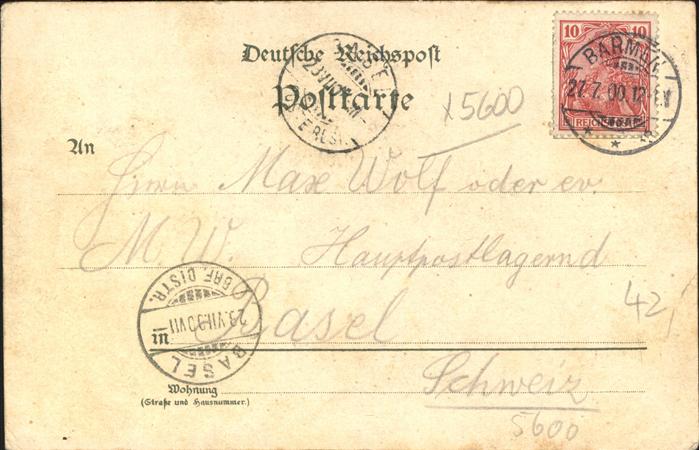 Deutsche Reichspost
Postkarte
10 10
REICHSPOST
BARMEN
27.7.00.12-1N
x 5600
An
Herrn Max Wolf oder ev.
M. W. Hauptpostlagernd
in Basel
Schweiz
42,
5600
BASEL
BRF. DISTR.
Wohnung
(Straße und Hausnummer.)